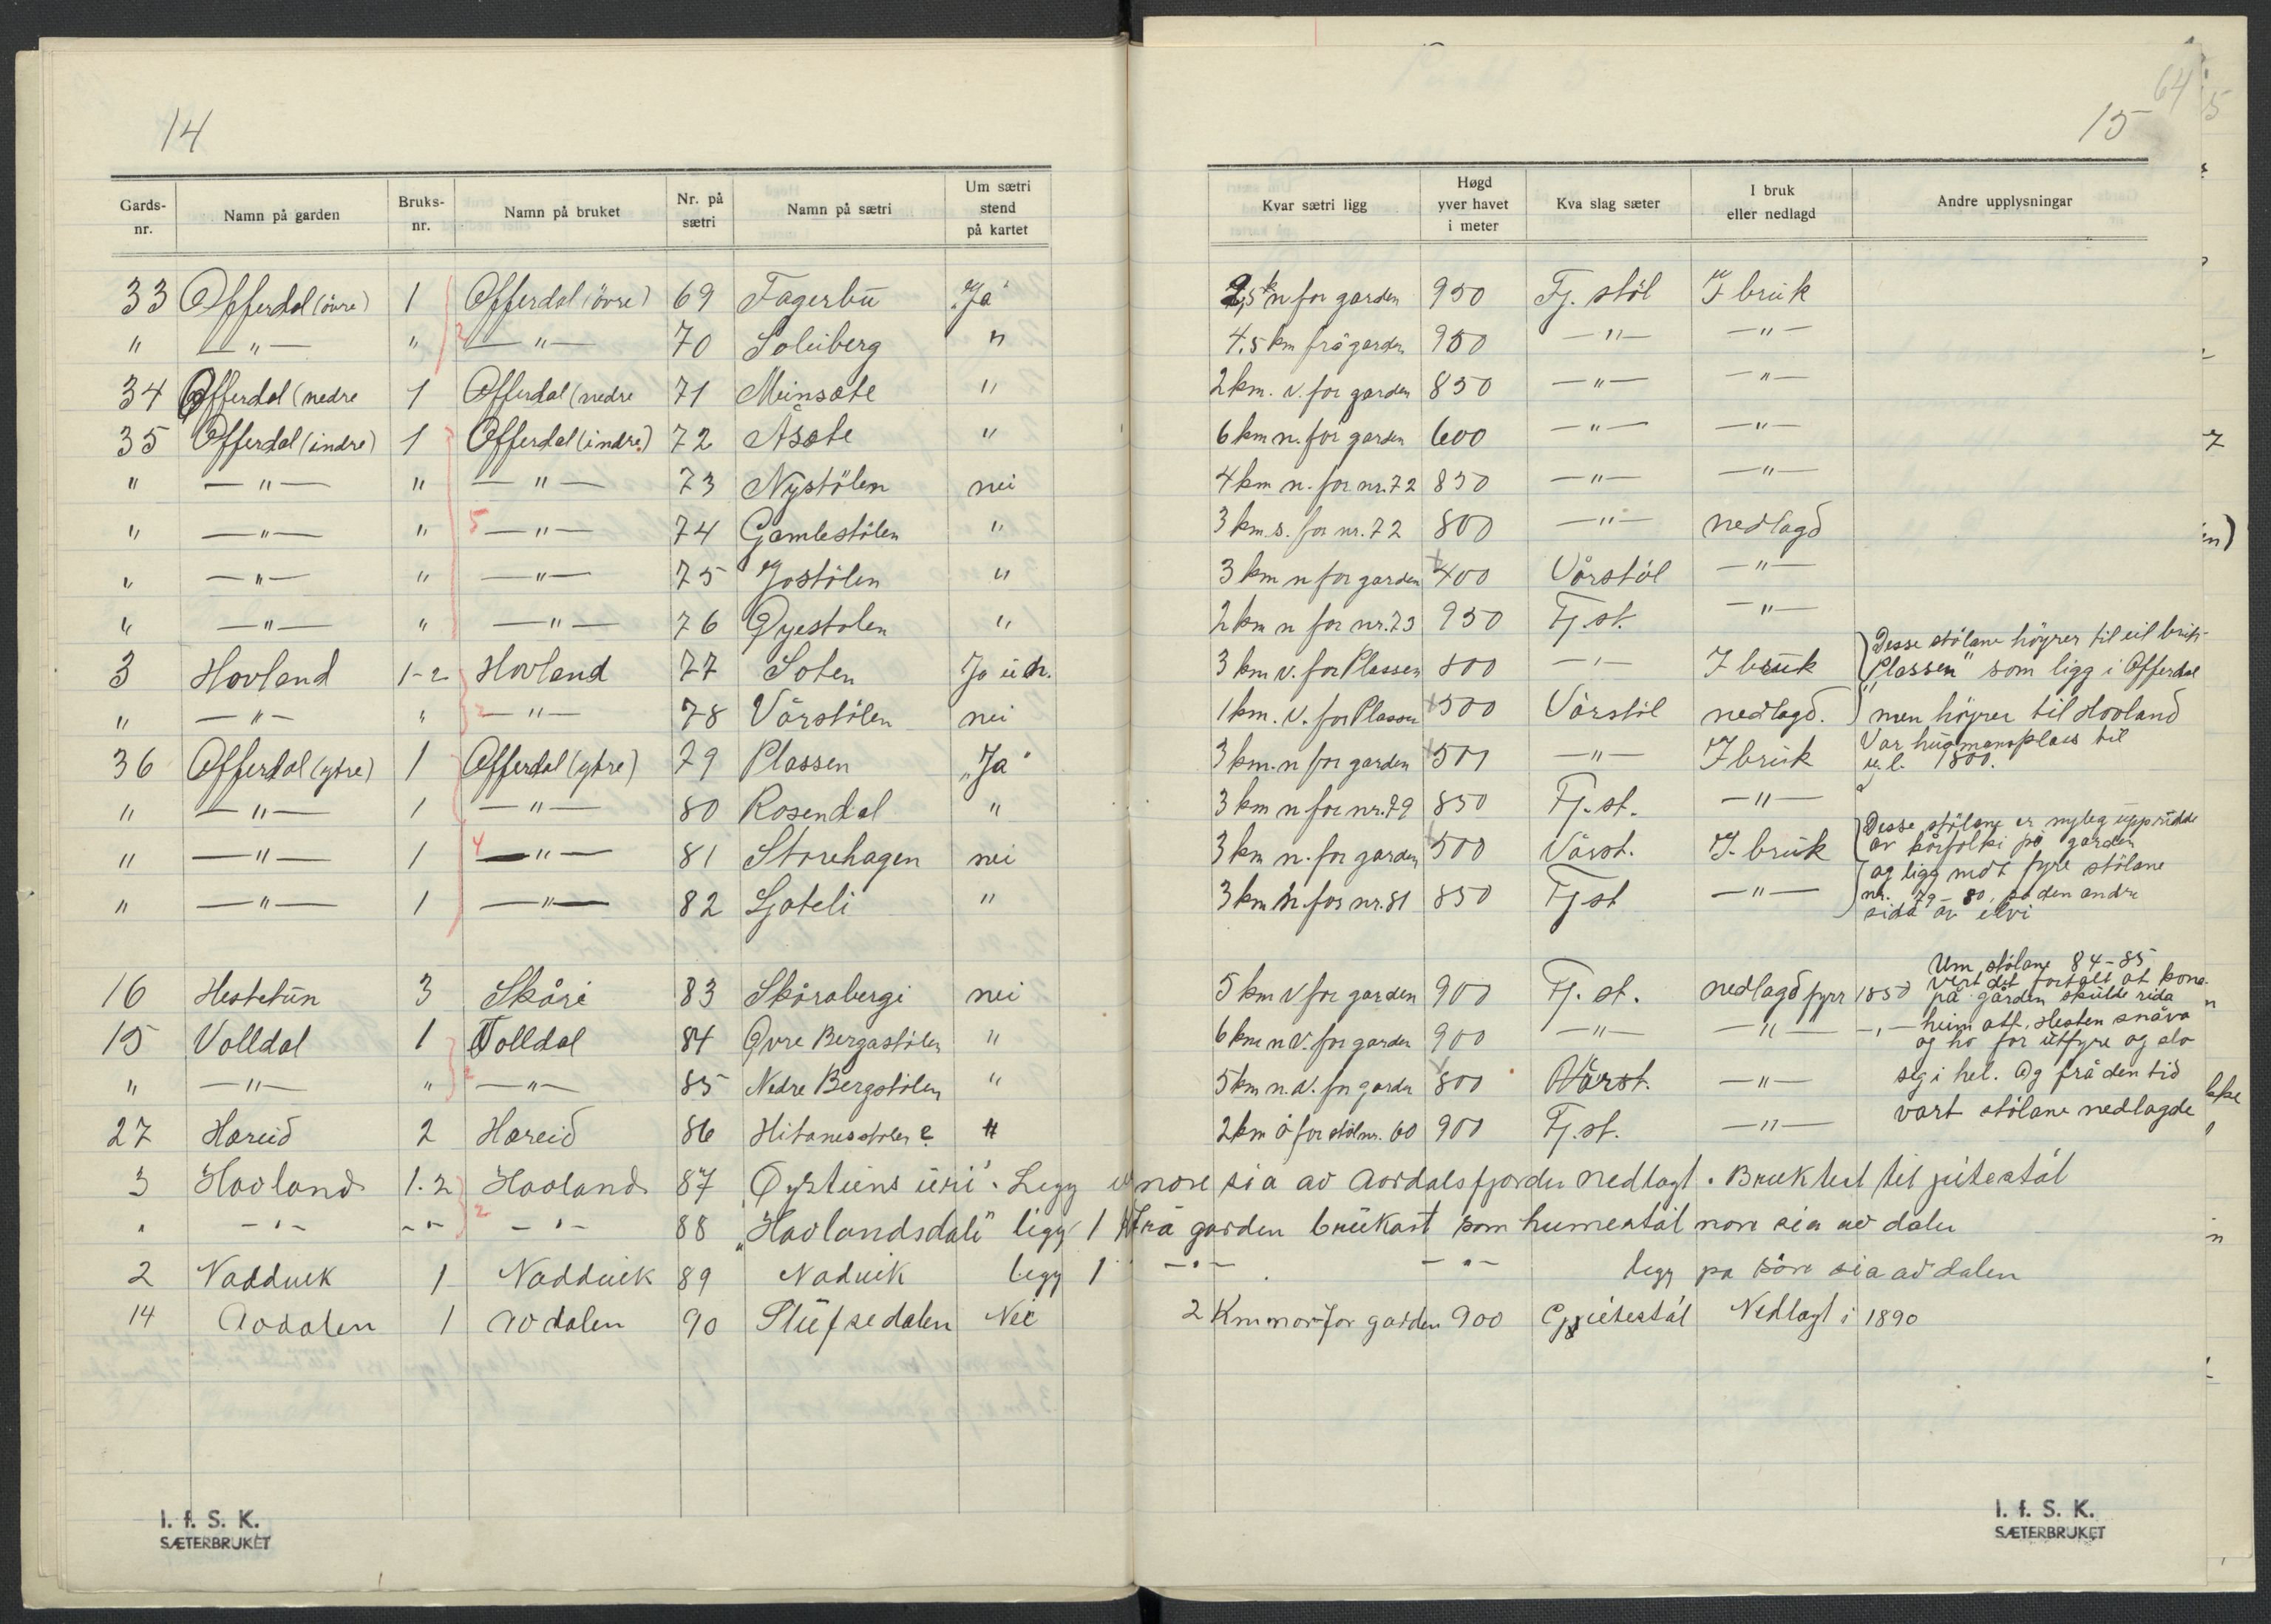 14
15
64
Gards-nr. Namn på garden Bruks-nr. Namn på bruket Nr. på sætri Namn på sætri Um sætri stend på kartet Kvar sætri ligg Høgd yver havet i meter Kva slag sæter I bruk eller nedlagd Andre upplysningar
33 Offerdal (övre) 1 Offerdal (övre) 69 Fagerbu "Ja" 2,5 km n for garden 950 Fj. stöl I bruk
" —"— " 2 —"— 70 Soleiberg " 4.5 km frå garden 950 —"— —"—
34 Offerdal (nedre 1 Offerdal (nedre 71 Meinsate " 2 km. v. for garden 850 —"— —"—
35 Offerdal (indre) 1 Offerdal (indre) 72 Åsate " 6 km n. for garden 600 —"— —"—
" —"— " —"— 73 Nystölen nei 4 km n. for nr. 72 850 —"— —"—
" —"— " 5 —"— 74 Gamlestölen " 3 km. s. for nr. 72 800 —"— nedlagd
" —"— " —"— 75 Jostölen " 3 km n for garden 400 Vårstöl —"—
" —"— " —"— 76 Øyestolen " 2 km n for nr. 73 950 Fj. st. —"—
3 Hovland 1-2 Hovland 77 Soten 3 km v. for Plassen 800 —"— I bruk Desse stölane höyrer til eit bruk "Plassen" som ligg i Offerdal
" —"— " 2 —"— 78 Vårstölen nei 1 km. v. for Plassen 500 Vårstöl nedlagd. men höyrer til Hovland
36 Offerdal (ytre) 1 Offerdal (ytre) 79 Plassen "Ja" 3 km. n for garden 500 —"— I bruk Var husmannsplass til 1800.
" —"— 1 —"— 80 Rosendal " 3 km n for nr. 79 850 Fj. st. —"—
" —"— 1 4 —"— 81 Storehagen nei 3 km n. for garden 500 Vårst. I. bruk Desse stölane er nyleg upprudde av kårfolki på garden
" —"— 1 —"— 82 Ljoteli " 3 km n. for nr. 81 850 Fj. st —"— og ligg midt fyre stölane nr. 79-80, på den andre sida av elvi
16 Hestetun 3 Skåri 83 Skårabergi nei 5 km v for garden 900 Fj. st. nedlagd fyrr 1850 Um stölane 84-85 vert det fortalt at kona på garden skulde rida
15 Volldal 1 Volldal 84 Øvre Bergastölen " 6 km n v. for garden 900 —"— —"— —"— heim att. Hesten snåva og ho for utfyre og slo
" —"— " 2 —"— 85 Nedre Bergstölen " 5 km n. v. for garden 800 Vårst. —"— seg i hel. Og frå den tid
27 Hæreid 2 Hæreid 86 Hitanesstolen ? " 2 km ö for stöl nr. 60 900 Fj. st. —"— vart stölane nedlagde
3 Hovland 1.2 Hovland 87 "Øysteins uri". Legg nore sia av Aordalsfjorden Nedlagt. Bruktest til jeitestöl
" —"— —"— 2 —"— 88 "Hovlandsdali" ligg 1 frå garden brukast som humestöl nore sia av dalen
2 Nadduik 1 Nadduik 89 Naduik legg 1 —"— —"— legg pa söre sia av dalen
14 Aodalen 1 Aodalen 90 Slufsedalen Nei 2 Km nor for garden 900 jeitestöl Nedlagt i 1890
I. f. S. K.
SÆTERBRUKET
I. f. S. K.
SÆTERBRUKET